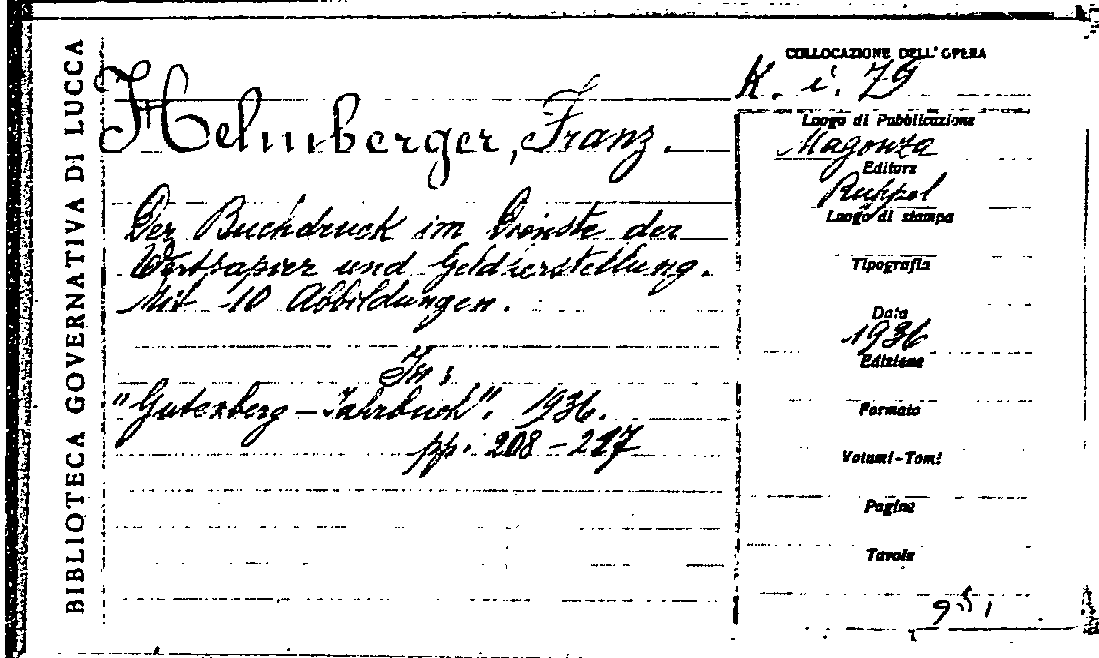 BIBLIOTECA GOVERNATIVA DI LUCCA
Helmberger, Franz.
Der Buchdruck im Dienste der
Wertpapier und Geldherstellung.
Mit 10 Abbildungen.
In:
"Gutenberg-Jahrbuch". 1936.
pp. 208-217
COLLOCAZIONE DELL'OPERA
K. i. 79
Luogo di Pubblicazione
Magonza
Editore
Ruppel
Luogo di stampa
Tipografia
Data
1936
Edizione
Formato
Volumi-Tomi
Pagine
Tavole
951